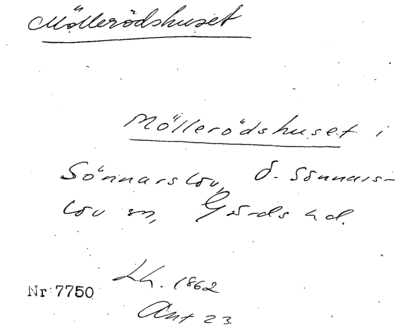 Möllerödshuset
Möllerödshuset i
Sönnarslov, Ö. Sönnars-
lov sn, Gärds hd.
Lh. 1862
Nr 7750
Ant 23